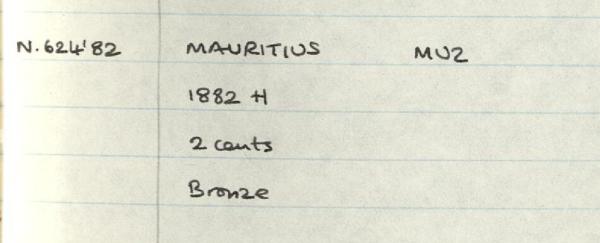 N.624'82 MAURITIUS MU2
1882 H
2 cents
Bronze